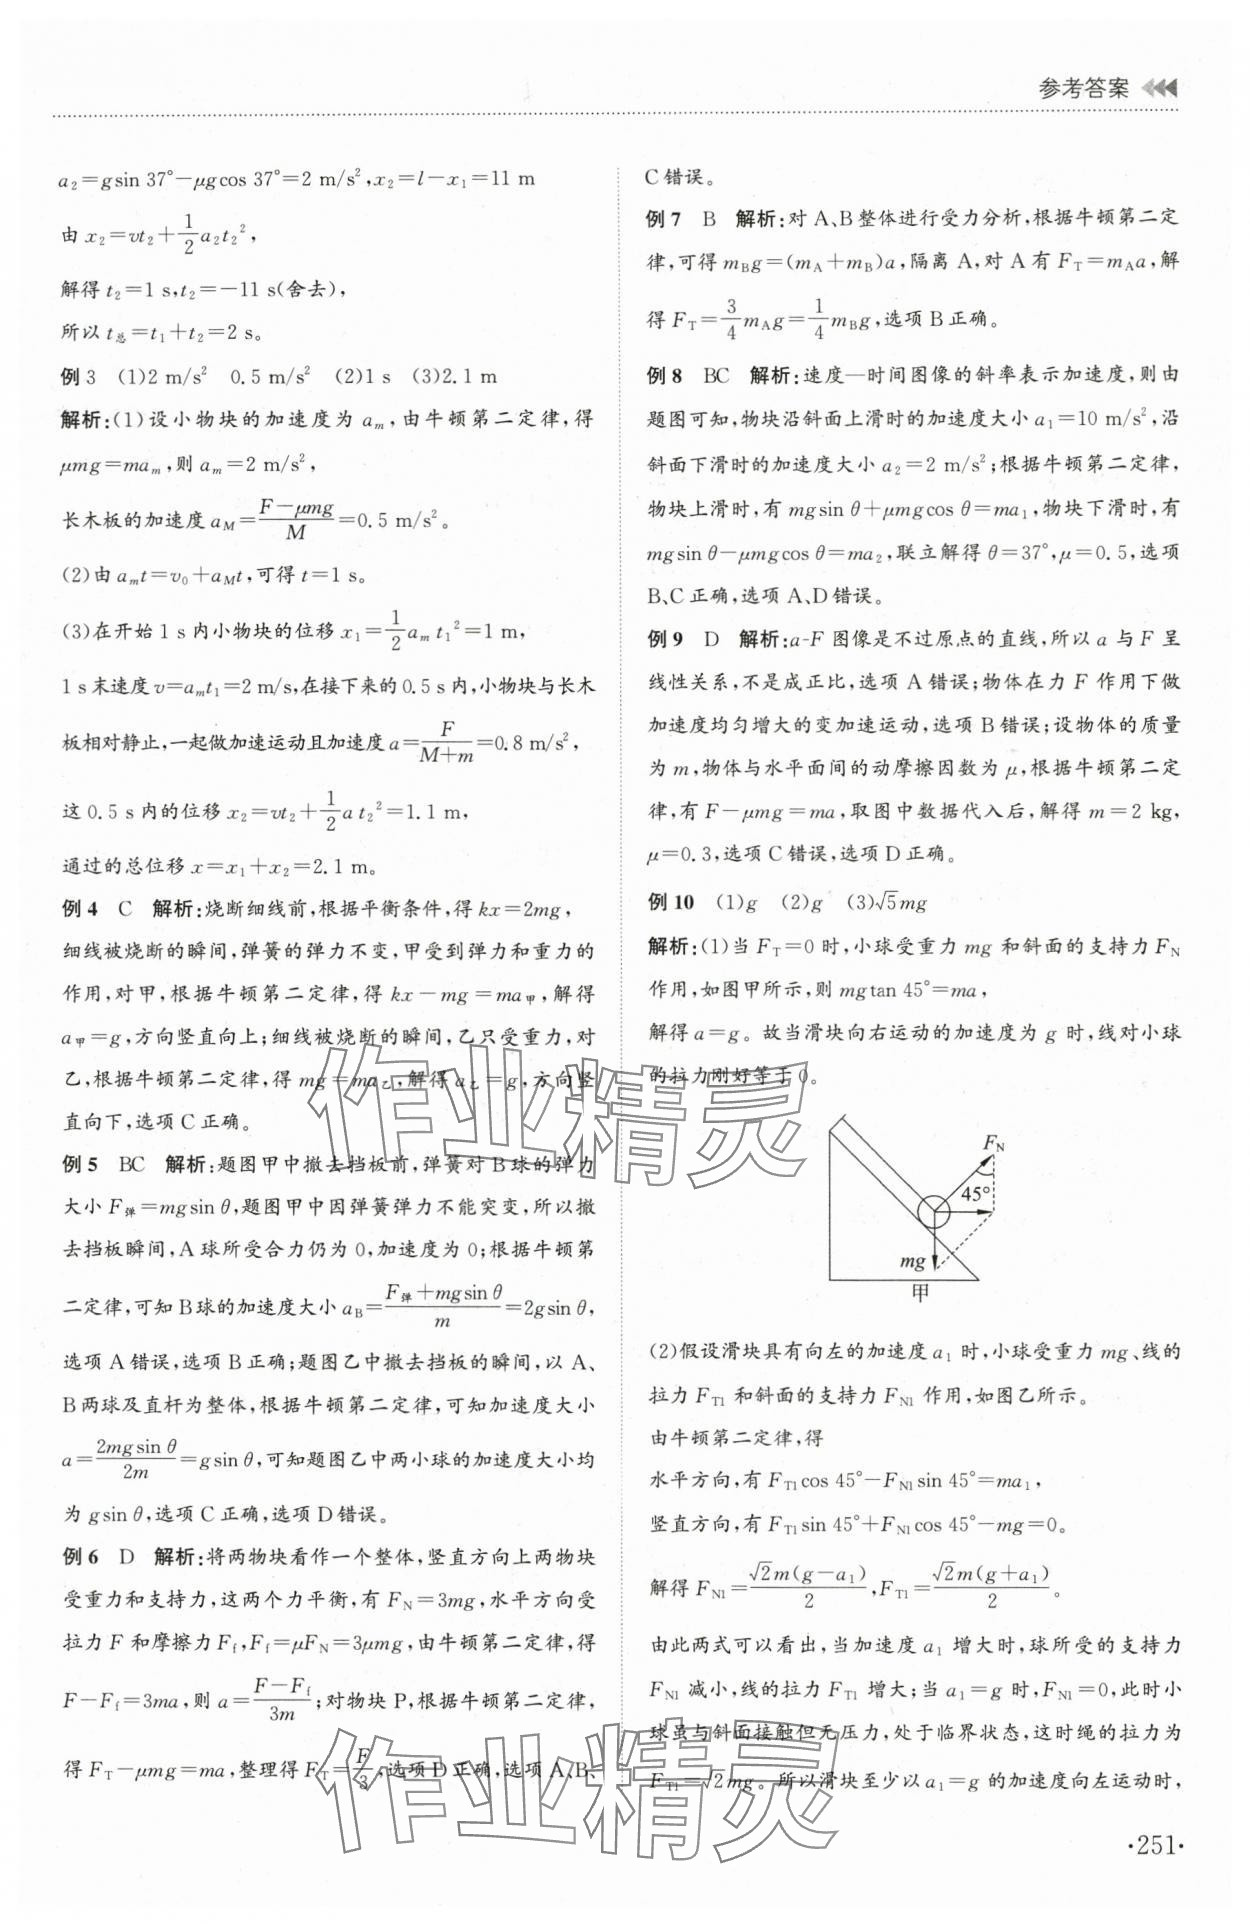 参考答案
a₂=gsin 37°-μgcos 37°=2 m/s²,x₂=l-x₁=11 m
由 x₂=vt₂+\frac{1}{2}a₂t₂²,
解得 t₂=1 s,t₂=-11 s(舍去),
所以 t总=t₁+t₂=2 s。
例 3 (1)2 m/s² 0.5 m/s² (2)1 s (3)2.1 m
解析:(1)设小物块的加速度为 aₘ,由牛顿第二定律,得
μmg=maₘ,则 aₘ=2 m/s²,
长木板的加速度 a_M=\frac{F-μmg}{M}=0.5 m/s²。
(2)由 aₘt=v₀+a_Mt,可得 t=1 s。
(3)在开始 1 s 内小物块的位移 x₁=\frac{1}{2}aₘt₁²=1 m,
1 s末速度 v=aₘt₁=2 m/s,在接下来的 0.5 s 内,小物块与长木
板相对静止,一起做加速运动且加速度 a=\frac{F}{M+m}=0.8 m/s²,
这 0.5 s 内的位移 x₂=vt₂+\frac{1}{2}a t₂²=1.1 m,
通过的总位移 x=x₁+x₂=2.1 m。
例 4 C 解析:烧断细线前,根据平衡条件,得 kx=2mg,
细线被烧断的瞬间,弹簧的弹力不变,甲受到弹力和重力的
作用,对甲,根据牛顿第二定律,得 kx-mg=ma甲,解得
a甲=g,方向竖直向上;细线被烧断的瞬间,乙只受重力,对
乙,根据牛顿第二定律,得 mg=ma乙,解得 a乙=g,方向竖
直向下,选项 C 正确。
例 5 BC 解析:题图甲中撤去挡板前,弹簧对 B 球的弹力
大小 F弹=mgsin θ,题图甲中因弹簧弹力不能突变,所以撤
去挡板瞬间,A 球所受合力仍为 0,加速度为 0;根据牛顿第
二定律,可知 B 球的加速度大小 a_B=\frac{F弹+mgsin θ}{m}=2gsin θ,
选项 A 错误,选项 B 正确;题图乙中撤去挡板的瞬间,以 A、
B 两球及直杆为整体,根据牛顿第二定律,可知加速度大小
a=\frac{2mgsin θ}{2m}=gsin θ,可知题图乙中两小球的加速度大小均
为 gsin θ,选项 C 正确,选项 D 错误。
例 6 D 解析:将两物块看作一个整体,竖直方向上两物块
受重力和支持力,这两个力平衡,有 F_N=3mg,水平方向受
拉力 F 和摩擦力 F_f,F_f=μF_N=3μmg,由牛顿第二定律,得
F-F_f=3ma,则 a=\frac{F-F_f}{3m};对物块 P,根据牛顿第二定律,
得 F_T-μmg=ma,整理得 F_T=\frac{F}{3},选项 D 正确,选项 A、B、
C 错误。
例 7 B 解析:对 A、B 整体进行受力分析,根据牛顿第二定
律,可得 m_Bg=(m_A+m_B)a,隔离 A,对 A 有 F_T=m_Aa,解
得 F_T=\frac{3}{4}m_Ag=\frac{1}{4}m_Bg,选项 B 正确。
例 8 BC 解析:速度—时间图像的斜率表示加速度,则由
题图可知,物块沿斜面上滑时的加速度大小 a₁=10 m/s²,沿
斜面下滑时的加速度大小 a₂=2 m/s²;根据牛顿第二定律,
物块上滑时,有 mgsin θ+μmgcos θ=ma₁,物块下滑时,有
mgsin θ-μmgcos θ=ma₂,联立解得 θ=37°,μ=0.5,选项
B、C 正确,选项 A、D 错误。
例 9 D 解析:a-F 图像是不过原点的直线,所以 a 与 F 呈
线性关系,不是成正比,选项 A 错误;物体在力 F 作用下做
加速度均匀增大的变加速运动,选项 B 错误;设物体的质量
为 m,物体与水平面间的动摩擦因数为 μ,根据牛顿第二定
律,有 F-μmg=ma,取图中数据代入后,解得 m=2 kg,
μ=0.3,选项 C 错误,选项 D 正确。
例 10 (1)g (2)g (3)√5mg
解析:(1)当 F_T=0 时,小球受重力 mg 和斜面的支持力 F_N
作用,如图甲所示,则 mgtan 45°=ma,
解得 a=g。故当滑块向右运动的加速度为 g 时,线对小球
的拉力刚好等于 0。
F_N
45°
mg
甲
(2)假设滑块具有向左的加速度 a₁ 时,小球受重力 mg、线的
拉力 F_T1 和斜面的支持力 F_N1 作用,如图乙所示。
由牛顿第二定律,得
水平方向,有 F_T1cos 45°-F_N1sin 45°=ma₁,
竖直方向,有 F_T1sin 45°+F_N1cos 45°-mg=0。
解得 F_N1=\frac{√2m(g-a₁)}{2},F_T1=\frac{√2m(g+a₁)}{2}。
由此两式可以看出,当加速度 a₁ 增大时,球所受的支持力
F_N1 减小,线的拉力 F_T1 增大;当 a₁=g 时,F_N1=0,此时小
球虽与斜面接触但无压力,处于临界状态,这时绳的拉力为
F_T1=√2mg。所以滑块至少以 a₁=g 的加速度向左运动时,
作业精灵
作业精灵
·251·